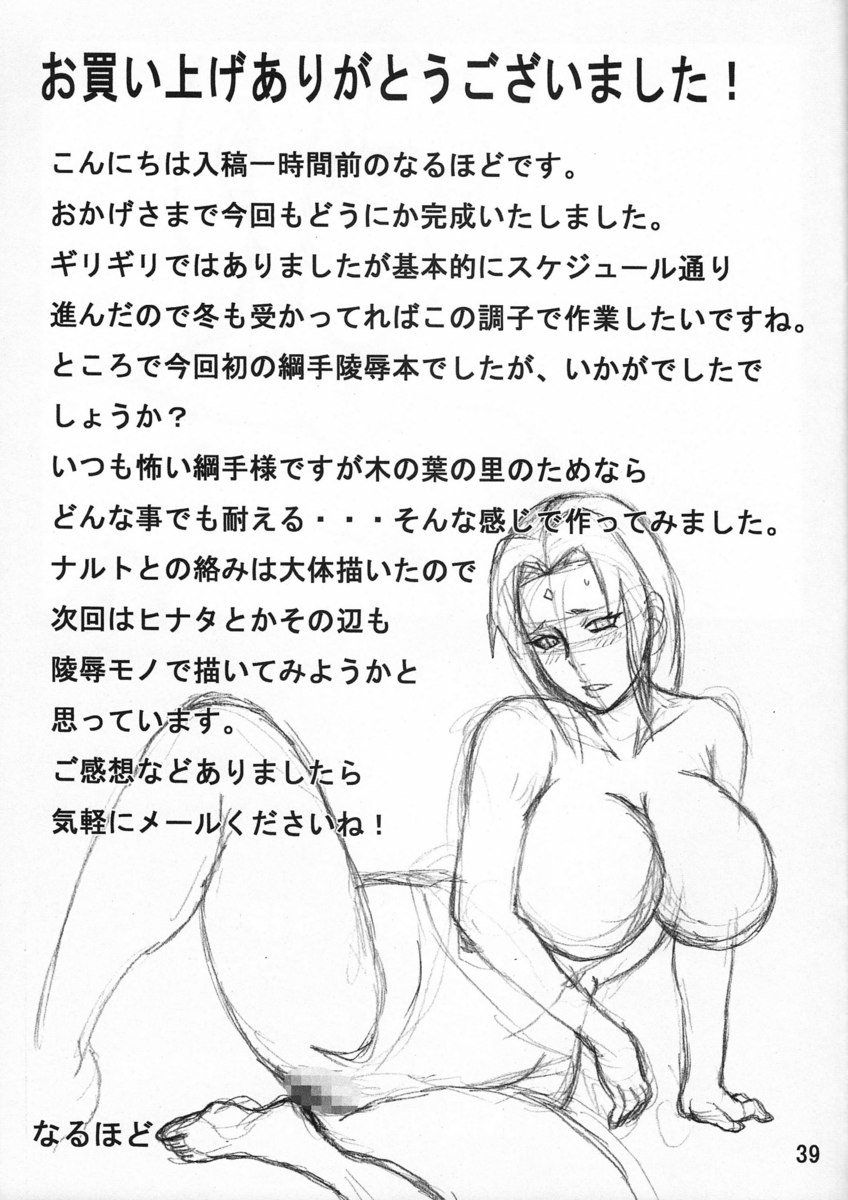 お買い上げありがとうございました！
こんにちは入稿一時間前のなるほどです。
おかげさまで今回もどうにか完成いたしました。
ギリギリではありましたが基本的にスケジュール通り
進んだので冬も受かってればこの調子で作業したいですね。
ところで今回初の綱手陵辱本でしたが、いかがでしたで
しょうか？
いつも怖い綱手様ですが木の葉の里のためなら
どんな事でも耐える・・・そんな感じで作ってみました。
ナルトとの絡みは大体描いたので
次回はヒナタとかその辺も
陵辱モノで描いてみようかと
思っています。
ご感想などありましたら
気軽にメールくださいね！
なるほど
39